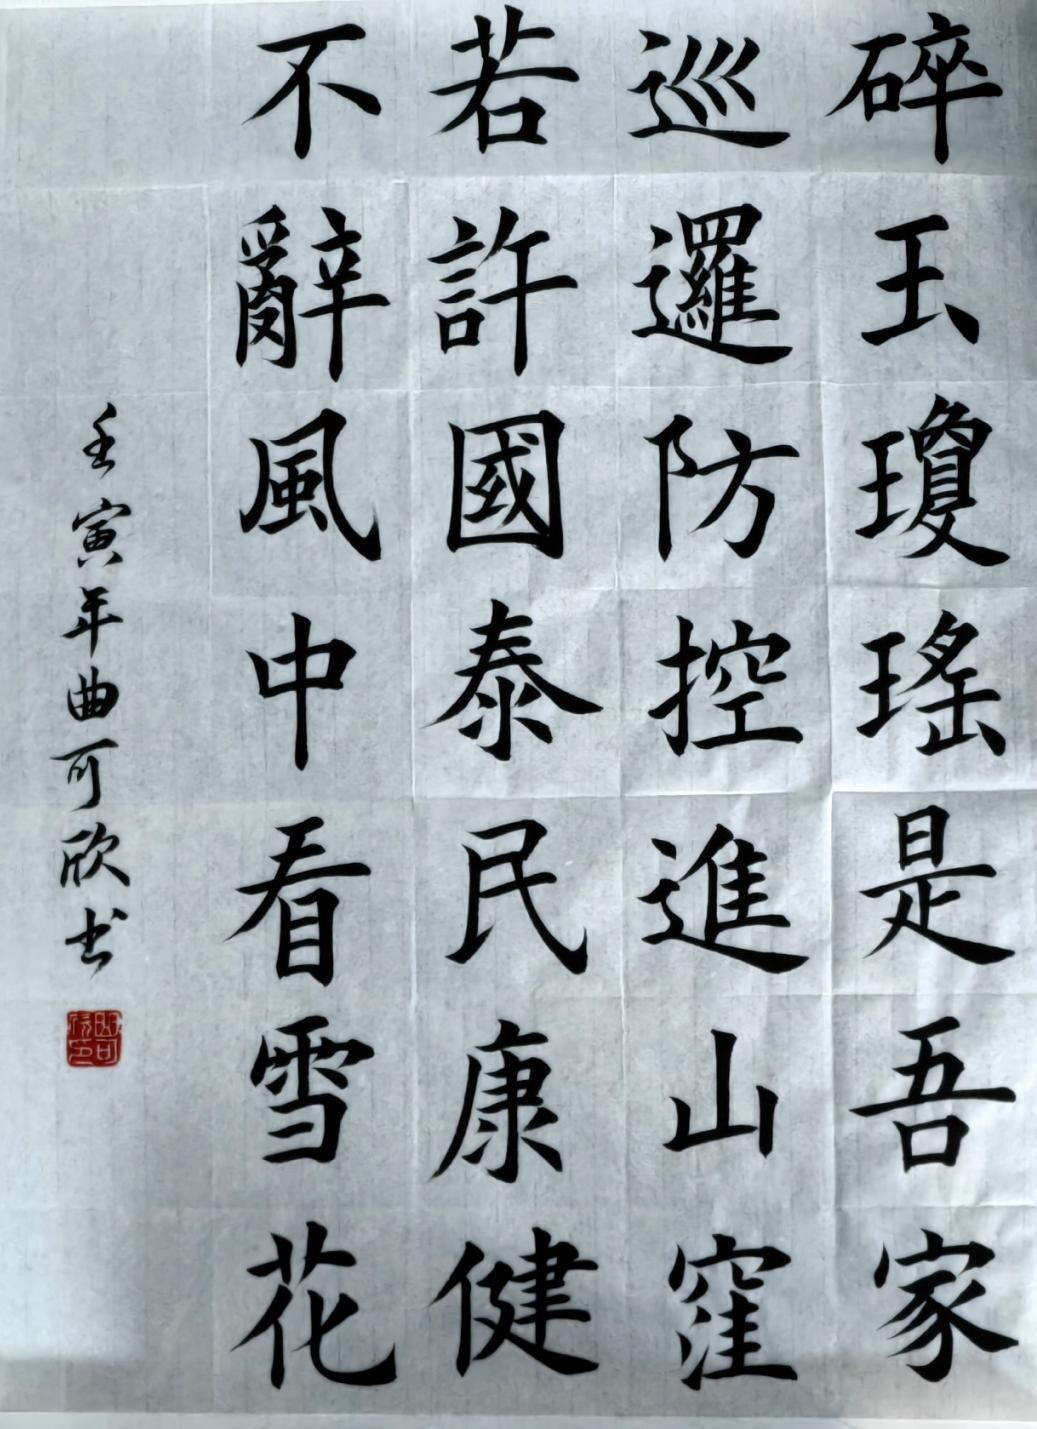 碎玉瓊瑤是吾家
巡邏防控進山窪
若許國泰民康健
不辭風中看雪花
壬寅年曲可欣书